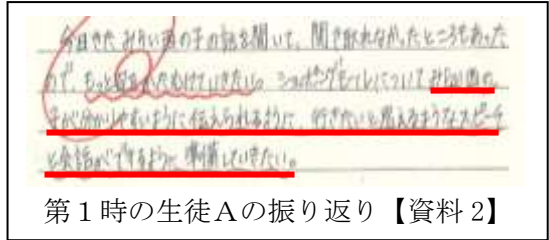 今日きた みらい園の子の話を聞いて、聞き取れなかったところもあった
ので、もっと
ショッピングモールについて みらい園の
子が分かりやすいように伝えられるように、行きたいと思えるようなスピーチ
と会話ができるように準備していきたい。
第1時の生徒Aの振り返り【資料2】